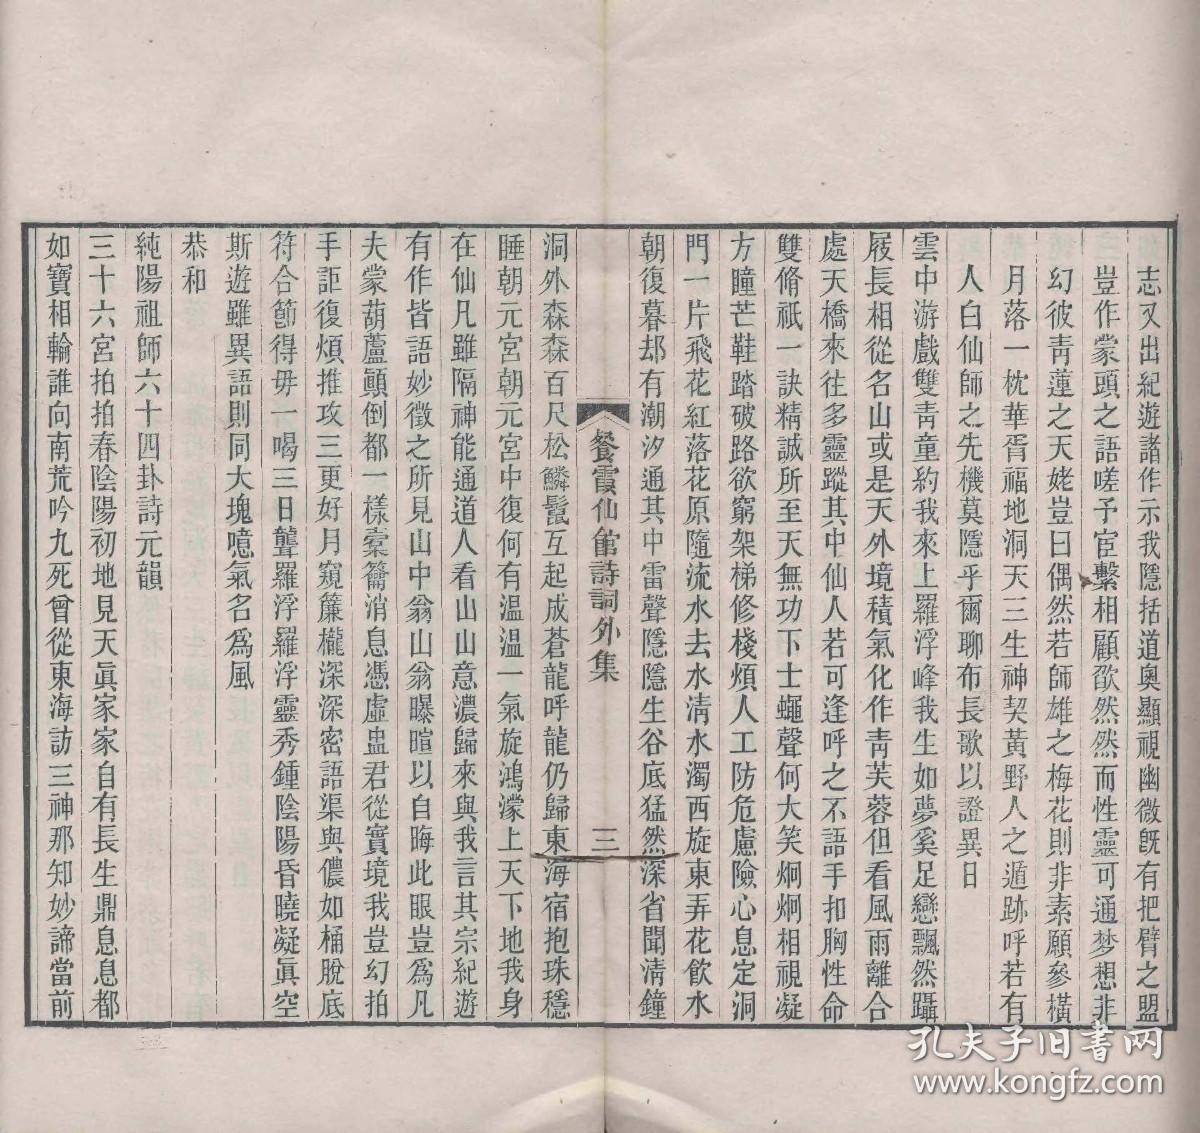 志又出紀遊諸作示我隱括道奧顯視幽微旣有把臂之盟
豈作蒙頭之語嗟予宦繫相顧欿然然而性靈可通梦想非
幻彼青蓮之天姥豈曰偶然若師雄之梅花則非素願參橫
月落一枕華胥福地洞天三生神契黃野人之遁跡呼若有
人白仙師之先機莫隱乎爾聊布長歌以證異日
雲中游戲雙青童約我來上羅浮峰我生如夢奚足戀飄然躡
屐長相從名山或是天外境積氣化作青芙蓉但看風雨離合
處天橋來往多靈蹤其中仙人若可逢呼之不語手扣胸性命
雙脩祇一訣精誠所至天無功下士蠅聲何大笑炯炯相視凝
方瞳芒鞋踏破路欲窮架梯修棧煩人工防危慮險心息定洞
門一片飛花紅落花原隨流水去水清水濁西旋東弄花飲水
朝復暮却有潮汐通其中雷聲隱隱生谷底猛然深省聞清鐘
餐霞仙館詩詞外集
三
洞外森森百尺松鱗鬛互起成蒼龍呼龍仍歸東海宿抱珠穩
睡朝元宮朝元宮中復何有温温一氣旋鴻濛上天下地我身
在仙凡雖隔神能通道人看山山意濃歸來與我言其宗紀遊
有作皆語妙徵之所見山中翁山翁曝暄以自晦此眼豈爲凡
夫蒙葫蘆顚倒都一樣橐籥消息憑虛盅君從實境我豈幻拍
手詎復煩推攻三更好月窺簾櫳深深密語渠與儂如桶脫底
符合節得毋一喝三日聾羅浮羅浮靈秀鍾陰陽昏曉凝眞空
斯遊雖異語則同大塊噫氣名爲風
恭和
純陽祖師六十四卦詩元韻
三十六宮拍拍春陰陽初地見天眞家家自有長生鼎息息都
如寶相輪誰向南荒吟九死曾從東海訪三神那知妙諦當前
孔夫子旧书网
www.kongfz.com